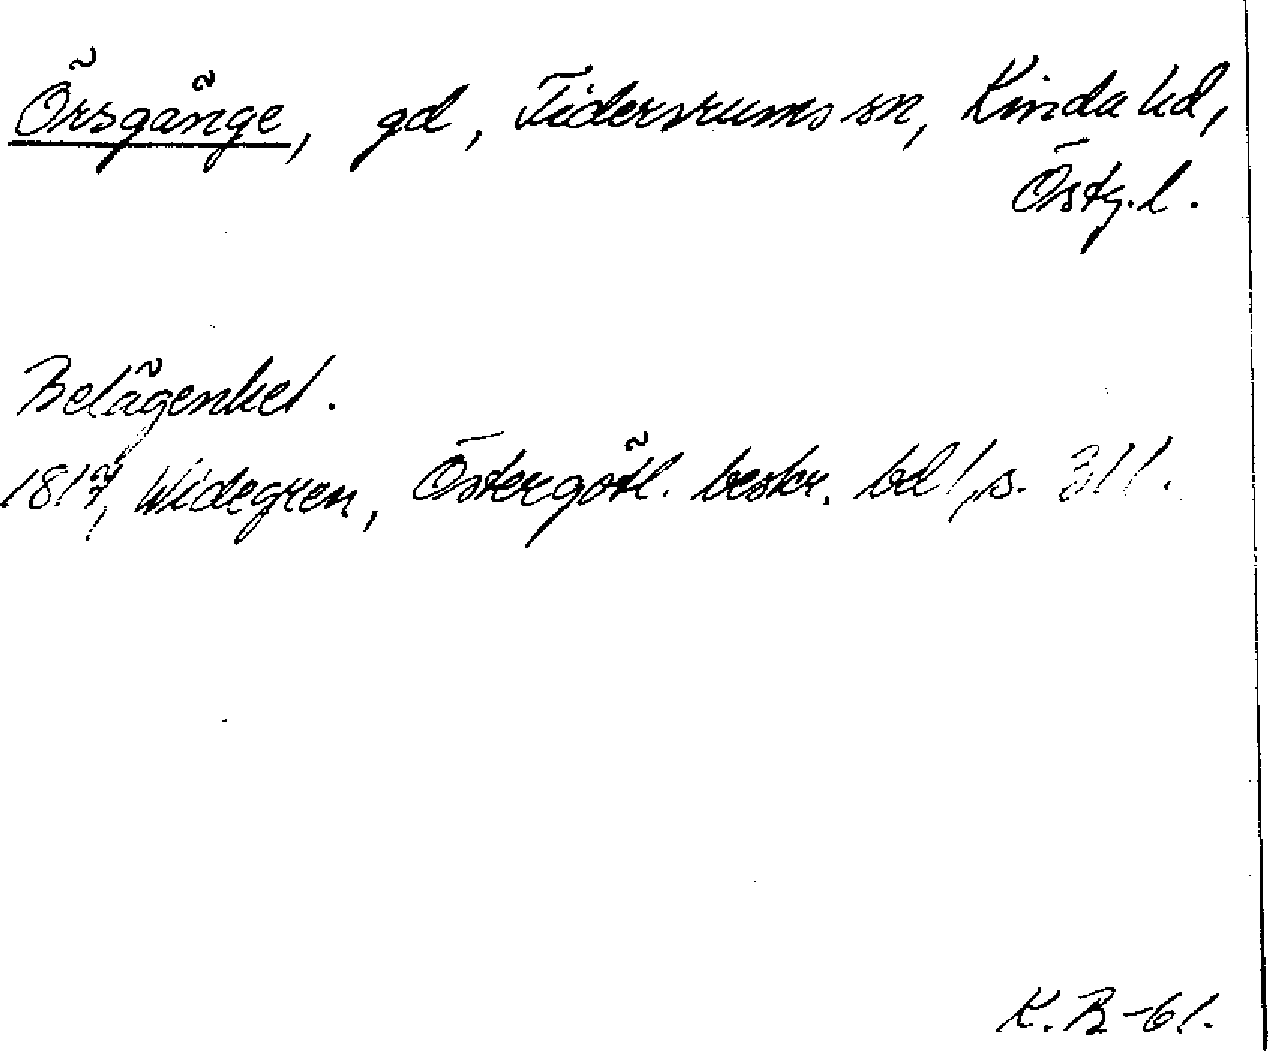 Örsgänge, gd, Tidersrums sn, Kinda hd,
Östg.l.
Belägenhet.
1817, Widegren, Östergötl. beskr. bd 1, s. 311.
K. B -61.